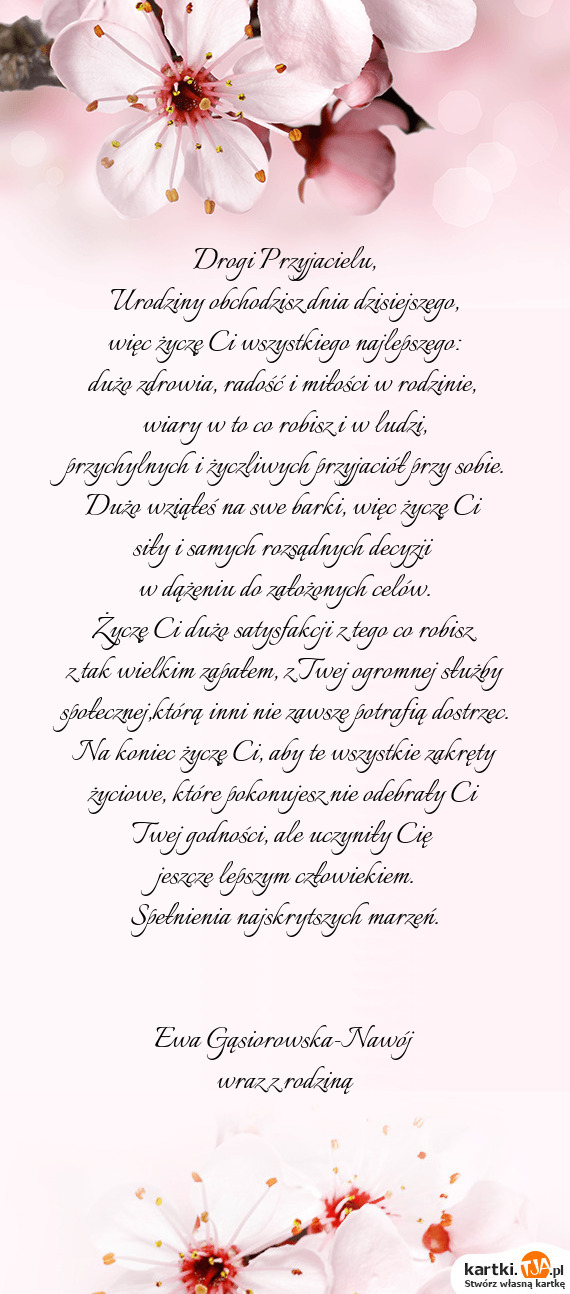 Drogi Przyjacielu,
Urodziny obchodzisz dnia dzisiejszego,
więc życzę Ci wszystkiego najlepszego:
dużo zdrowia, radość i miłości w rodzinie,
wiary w to co robisz i w ludzi,
przychylnych i życzliwych przyjaciół przy sobie.
Dużo wziąłeś na swe barki, więc życzę Ci
siły i samych rozsądnych decyzji
w dążeniu do założonych celów.
Życzę Ci dużo satysfakcji z tego co robisz
z tak wielkim zapałem, z Twej ogromnej służby
społecznej,którą inni nie zawsze potrafią dostrzec.
Na koniec życzę Ci, aby te wszystkie zakręty
życiowe, które pokonujesz nie odebrały Ci
Twej godności, ale uczyniły Cię
jeszcze lepszym człowiekiem.
Spełnienia najskrytszych marzeń.
Ewa Gąsiorowska-Nawój
wraz z rodziną
kartki.TJA.pl
Stwórz własną kartkę